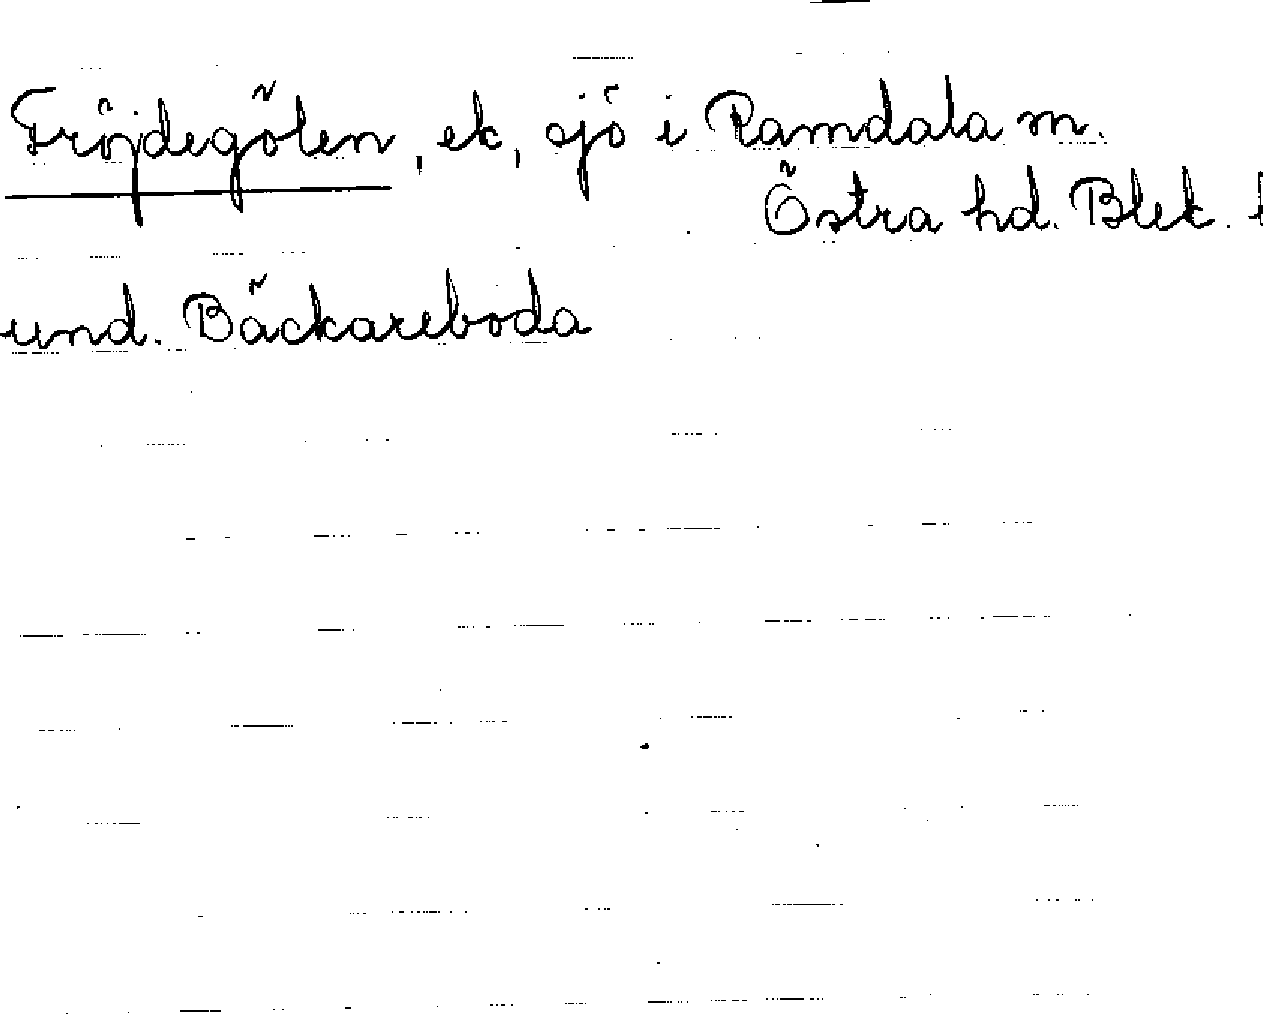 Fröjdegölen, ek, sjö i Ramdala sn.
Östra hd. Blek. l
und. Bäckareboda